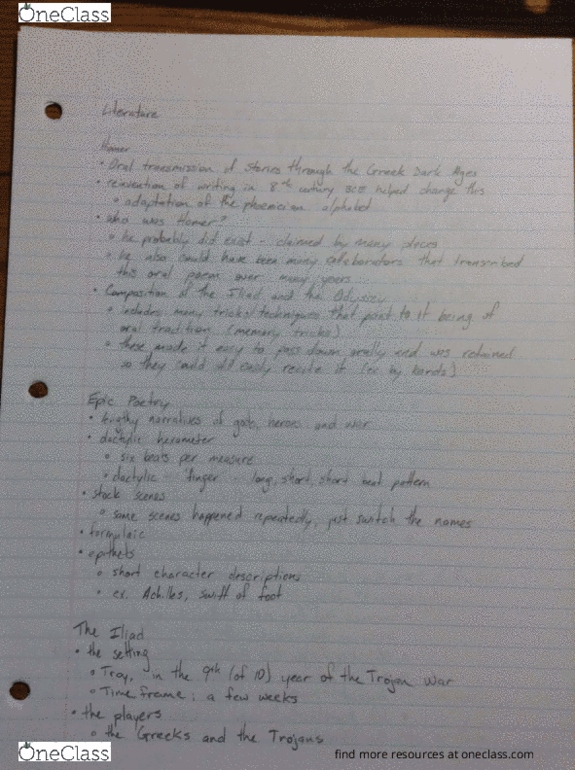 OneClass
Literature
Homer
• Oral transmission of stories through the Greek Dark Ages
• reinvention of writing in 8th century BCE helped change this
◦ adaptation of the phoenician alphabet
• who was Homer?
◦ he probably did exist - claimed by many places
◦ he also could have been many collaborators that transcribed
this oral poem over many years
• Composition of the Iliad and the Odyssey
◦ includes many tricks/techniques that point to it being of
oral tradition (memory tricks)
◦ these made it easy to pass down orally and was retained
so they could still easily recite it (ex. by bards)
Epic Poetry
• lengthy narratives of gods, heroes and war
• dactylic hexameter
◦ six beats per measure
◦ dactylic - finger - long, short, short beat pattern
• stock scenes
◦ same scenes happened repeatedly, just switch the names
• formulaic
• epithets
◦ short character descriptions
◦ ex. Achilles, swift of foot
The Iliad
• the setting
◦ Troy, in the 9th (of 10) year of the Trojan War
◦ Time frame: a few weeks
• the players
◦ the Greeks and the Trojans
OneClass
find more resources at oneclass.com